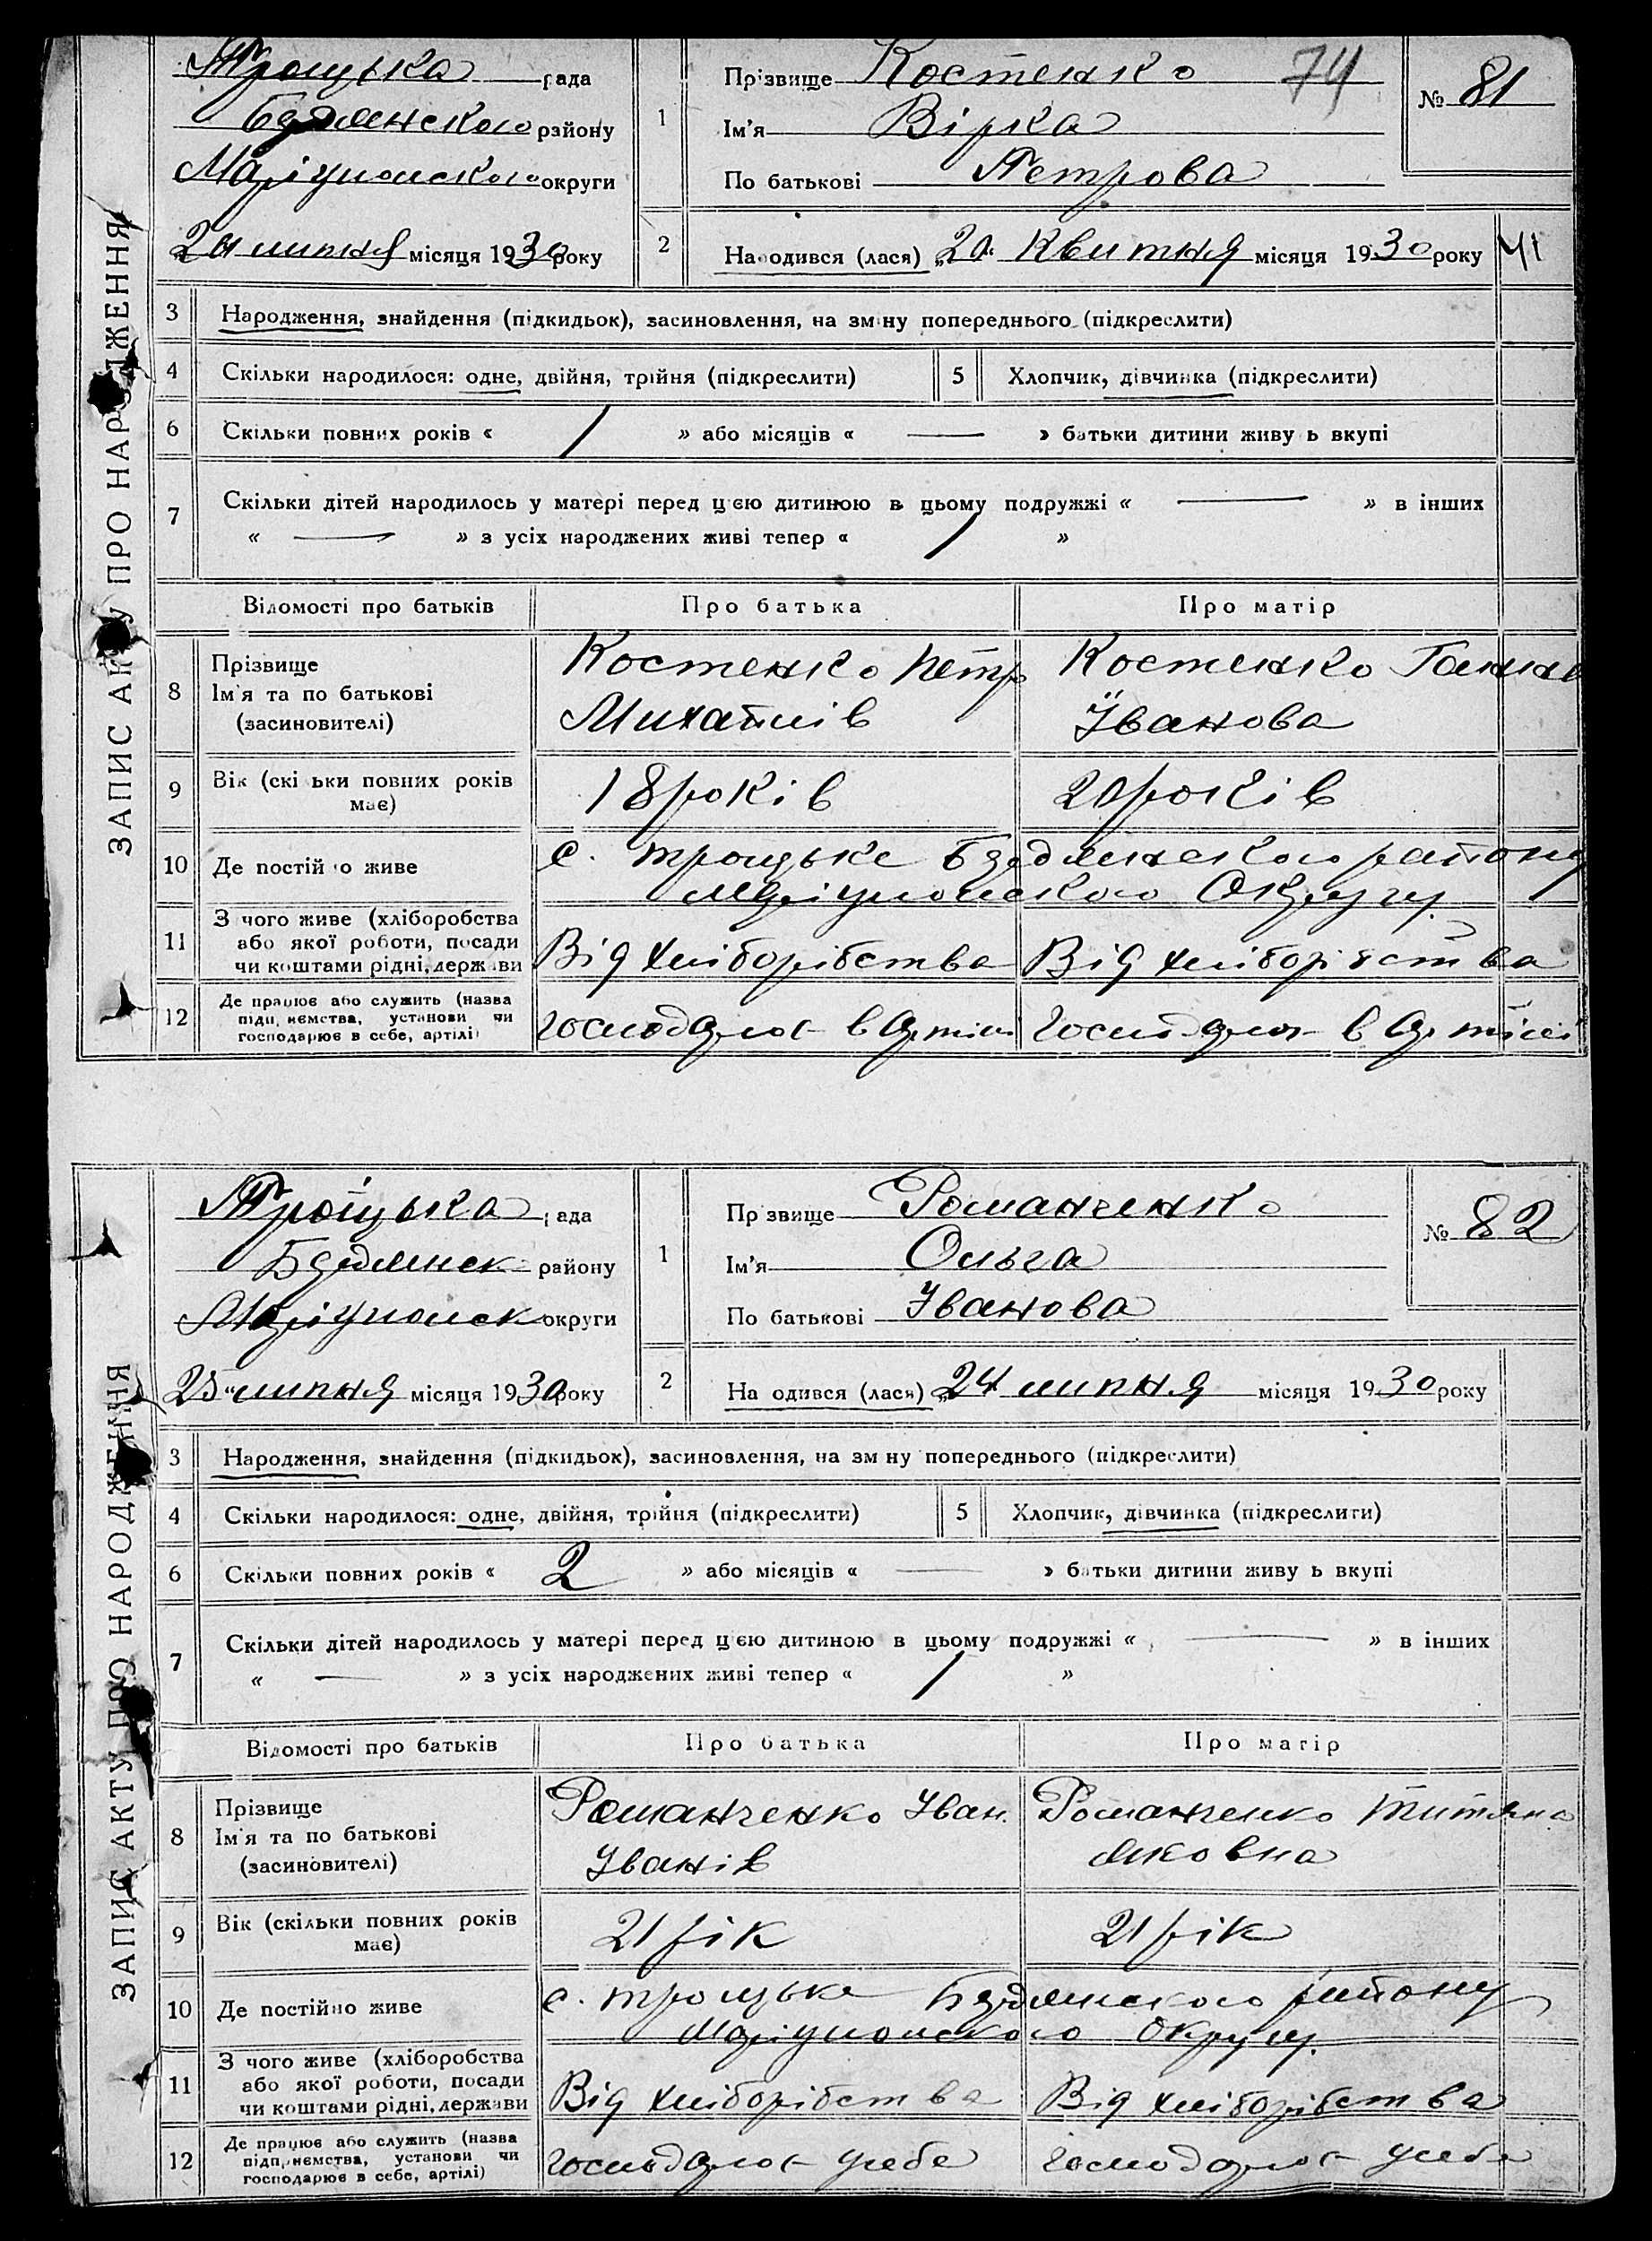 ЗАПИС АКТУ ПРО НАРОДЖЕННЯ
Троїцька рада
Бердянского району
Маріупольского округи
місяця 1930 року
1
Прізвище Костенко
74
№ 81
Ім'я Вірка
По батькові Петрова
2
Народився (лася) „20“ Квитня місяця 1930 року
3 Народження, знайдення (підкидьок), засиновлення, на зміну попереднього (підкреслити)
4 Скільки народилося: одне, двійня, трійня (підкреслити) 5 Хлопчик, дівчинка (підкреслити)
6 Скільки повних років « 1 » або місяців « — » батьки дитини живуть вкупі
7 Скільки дітей народилось у матері перед цією дитиною в цьому подружжі « — » в інших
« — » з усіх народжених живі тепер « 1 »
Відомості про батьків Про батька Про матір
8 Прізвище
Ім'я та по батькові
(засиновителі)
Костенко Петр
Михайлів
Костенко Ганна
Іванова
9 Вік (скільки повних років
має)
18 років 20 років
10 Де постійно живе
с. Троїцьке Бердянского району
Маріупольского Округу.
11 З чого живе (хліборобства
або якої роботи, посади
чи коштами рідні, держави
Від хліборібства Від хліборібства
12 Де працює або служить (назва
підприємства, установи чи
господарює в себе, артілі)
в артілі в артілі
ЗАПИС АКТУ ПРО НАРОДЖЕННЯ
Троїцька рада
Бердянск району
Маріупольск округи
25 „липня місяця 1930 року
1
Прізвище Романченко
№ 82
Ім'я Ольга
По батькові Іванова
2
Народився (лася) „24 липня місяця 1930 року
3 Народження, знайдення (підкидьок), засиновлення, на зміну попереднього (підкреслити)
4 Скільки народилося: одне, двійня, трійня (підкреслити) 5 Хлопчик, дівчинка (підкреслити)
6 Скільки повних років « 2 » або місяців « — » батьки дитини живуть вкупі
7 Скільки дітей народилось у матері перед цією дитиною в цьому подружжі « — » в інших
« — » з усіх народжених живі тепер « 1 »
Відомості про батьків Про батька Про матір
8 Прізвище
Ім'я та по батькові
(засиновителі)
Романченко Іван.
Іванів
Романченко Титяна
Яковна
9 Вік (скільки повних років
має)
21 рік 21 рік
10 Де постійно живе
с. Троїцьке Бердянского району
Маріупольского Округу.
11 З чого живе (хліборобства
або якої роботи, посади
чи коштами рідні, держави
Від хліборібства Від хліборібства
12 Де працює або служить (назва
підприємства, установи чи
господарює в себе, артілі)
усебе усебе